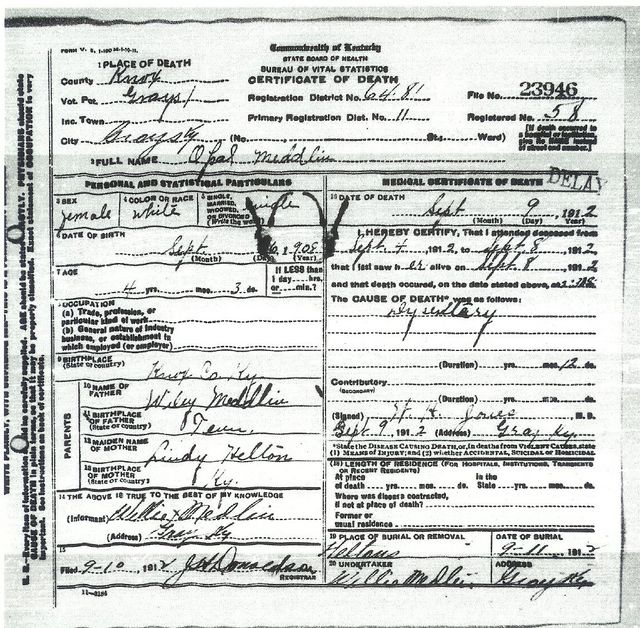 FORM V. S. 1-100 M-1-10-11.
Commonwealth of Kentucky
STATE BOARD OF HEALTH
BUREAU OF VITAL STATISTICS
CERTIFICATE OF DEATH
1 PLACE OF DEATH
County Knox
Vot. Pct. Grays
Inc. Town
City Grays Ky (No. St.; Ward)
Registration District No. 6481
Primary Registration Dist. No. 11
File No. 23946
Registered No. 58
[If death occurred in a hospital or institution give its NAME instead of street and number.]
2 FULL NAME Opal Meddlin
PERSONAL AND STATISTICAL PARTICULARS
3 SEX female
4 COLOR OR RACE white
5 SINGLE, MARRIED, WIDOWED, OR DIVORCED (Write the word) single
6 DATE OF BIRTH
Sept 6, 1908
(Month) (Day) (Year)
7 AGE
4 yrs. mos. 3 ds.
If LESS than 1 day....hrs. or....min.?
8 OCCUPATION
(a) Trade, profession, or particular kind of work
(b) General nature of industry business, or establishment in which employed (or employer)
9 BIRTHPLACE
(State or country) Knox Co. Ky
PARENTS
10 NAME OF FATHER Wiley Meddlin
11 BIRTHPLACE OF FATHER (State or country) Tenn.
12 MAIDEN NAME OF MOTHER Lindy Helton
13 BIRTHPLACE OF MOTHER (State or country) Ky.
14 THE ABOVE IS TRUE TO THE BEST OF MY KNOWLEDGE
(Informant) Willie Medlin
(Address) Gray Ky
15
Filed 9-10, 1912 J H Donaldson
REGISTRAR
11—3184
MEDICAL CERTIFICATE OF DEATH
DELAY
16 DATE OF DEATH
Sept 9, 1912
(Month) (Day) (Year)
17 I HEREBY CERTIFY, That I attended deceased from
Sept. 4, 1912, to Sept. 8, 1912
that I last saw her alive on Sept. 8, 1912
and that death occured, on the date stated above, at
The CAUSE OF DEATH* was as follows:
Dysentary
(Duration) yrs. mos. 12 ds.
Contributory
(SECONDARY)
(Duration) yrs. mos. ds.
(Signed) Jones M. D.
Sept. 9, 1912 (Address) Gray Ky
*State the DISEASE CAUSING DEATH, or, in deaths from VIOLENT CAUSES, state (1) MEANS OF INJURY; and (2) whether ACCIDENTAL, SUICIDAL or HOMICIDAL
18 LENGTH OF RESIDENCE (FOR HOSPITALS, INSTITUTIONS, TRANSIENTS OR RECENT RESIDENTS)
At place of death yrs. mos. ds. In the State yrs. mos. ds.
Where was disease contracted,
if not at place of death?
Former or
usual residence
19 PLACE OF BURIAL OR REMOVAL
Heltons
DATE OF BURIAL
9-11, 1912
20 UNDERTAKER
Willie Medlin
ADDRESS
Gray Ky